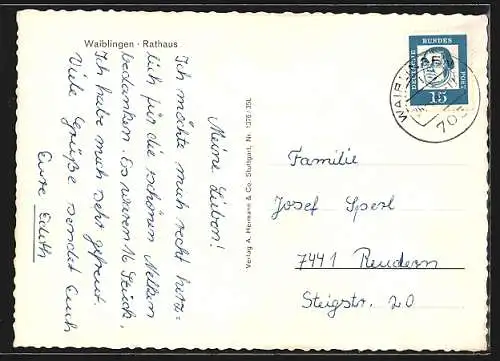 Waiblingen · Rathaus
Meine Lieben!
Ich möchte mich recht herz-
lich für die schönen Nelken
bedanken. Es waren 16 Stück,
Ich habe mich sehr gefreut.
Viele Grüße sendet Euch
Eure Edith
Verlag A. Hermann & Co. Stuttgart, Nr.
DEUTSCHE
BUNDES
POST
15
WAIBLINGEN
705
Familie
Josef Sperl
7441 Reudern
Steigstr. 20